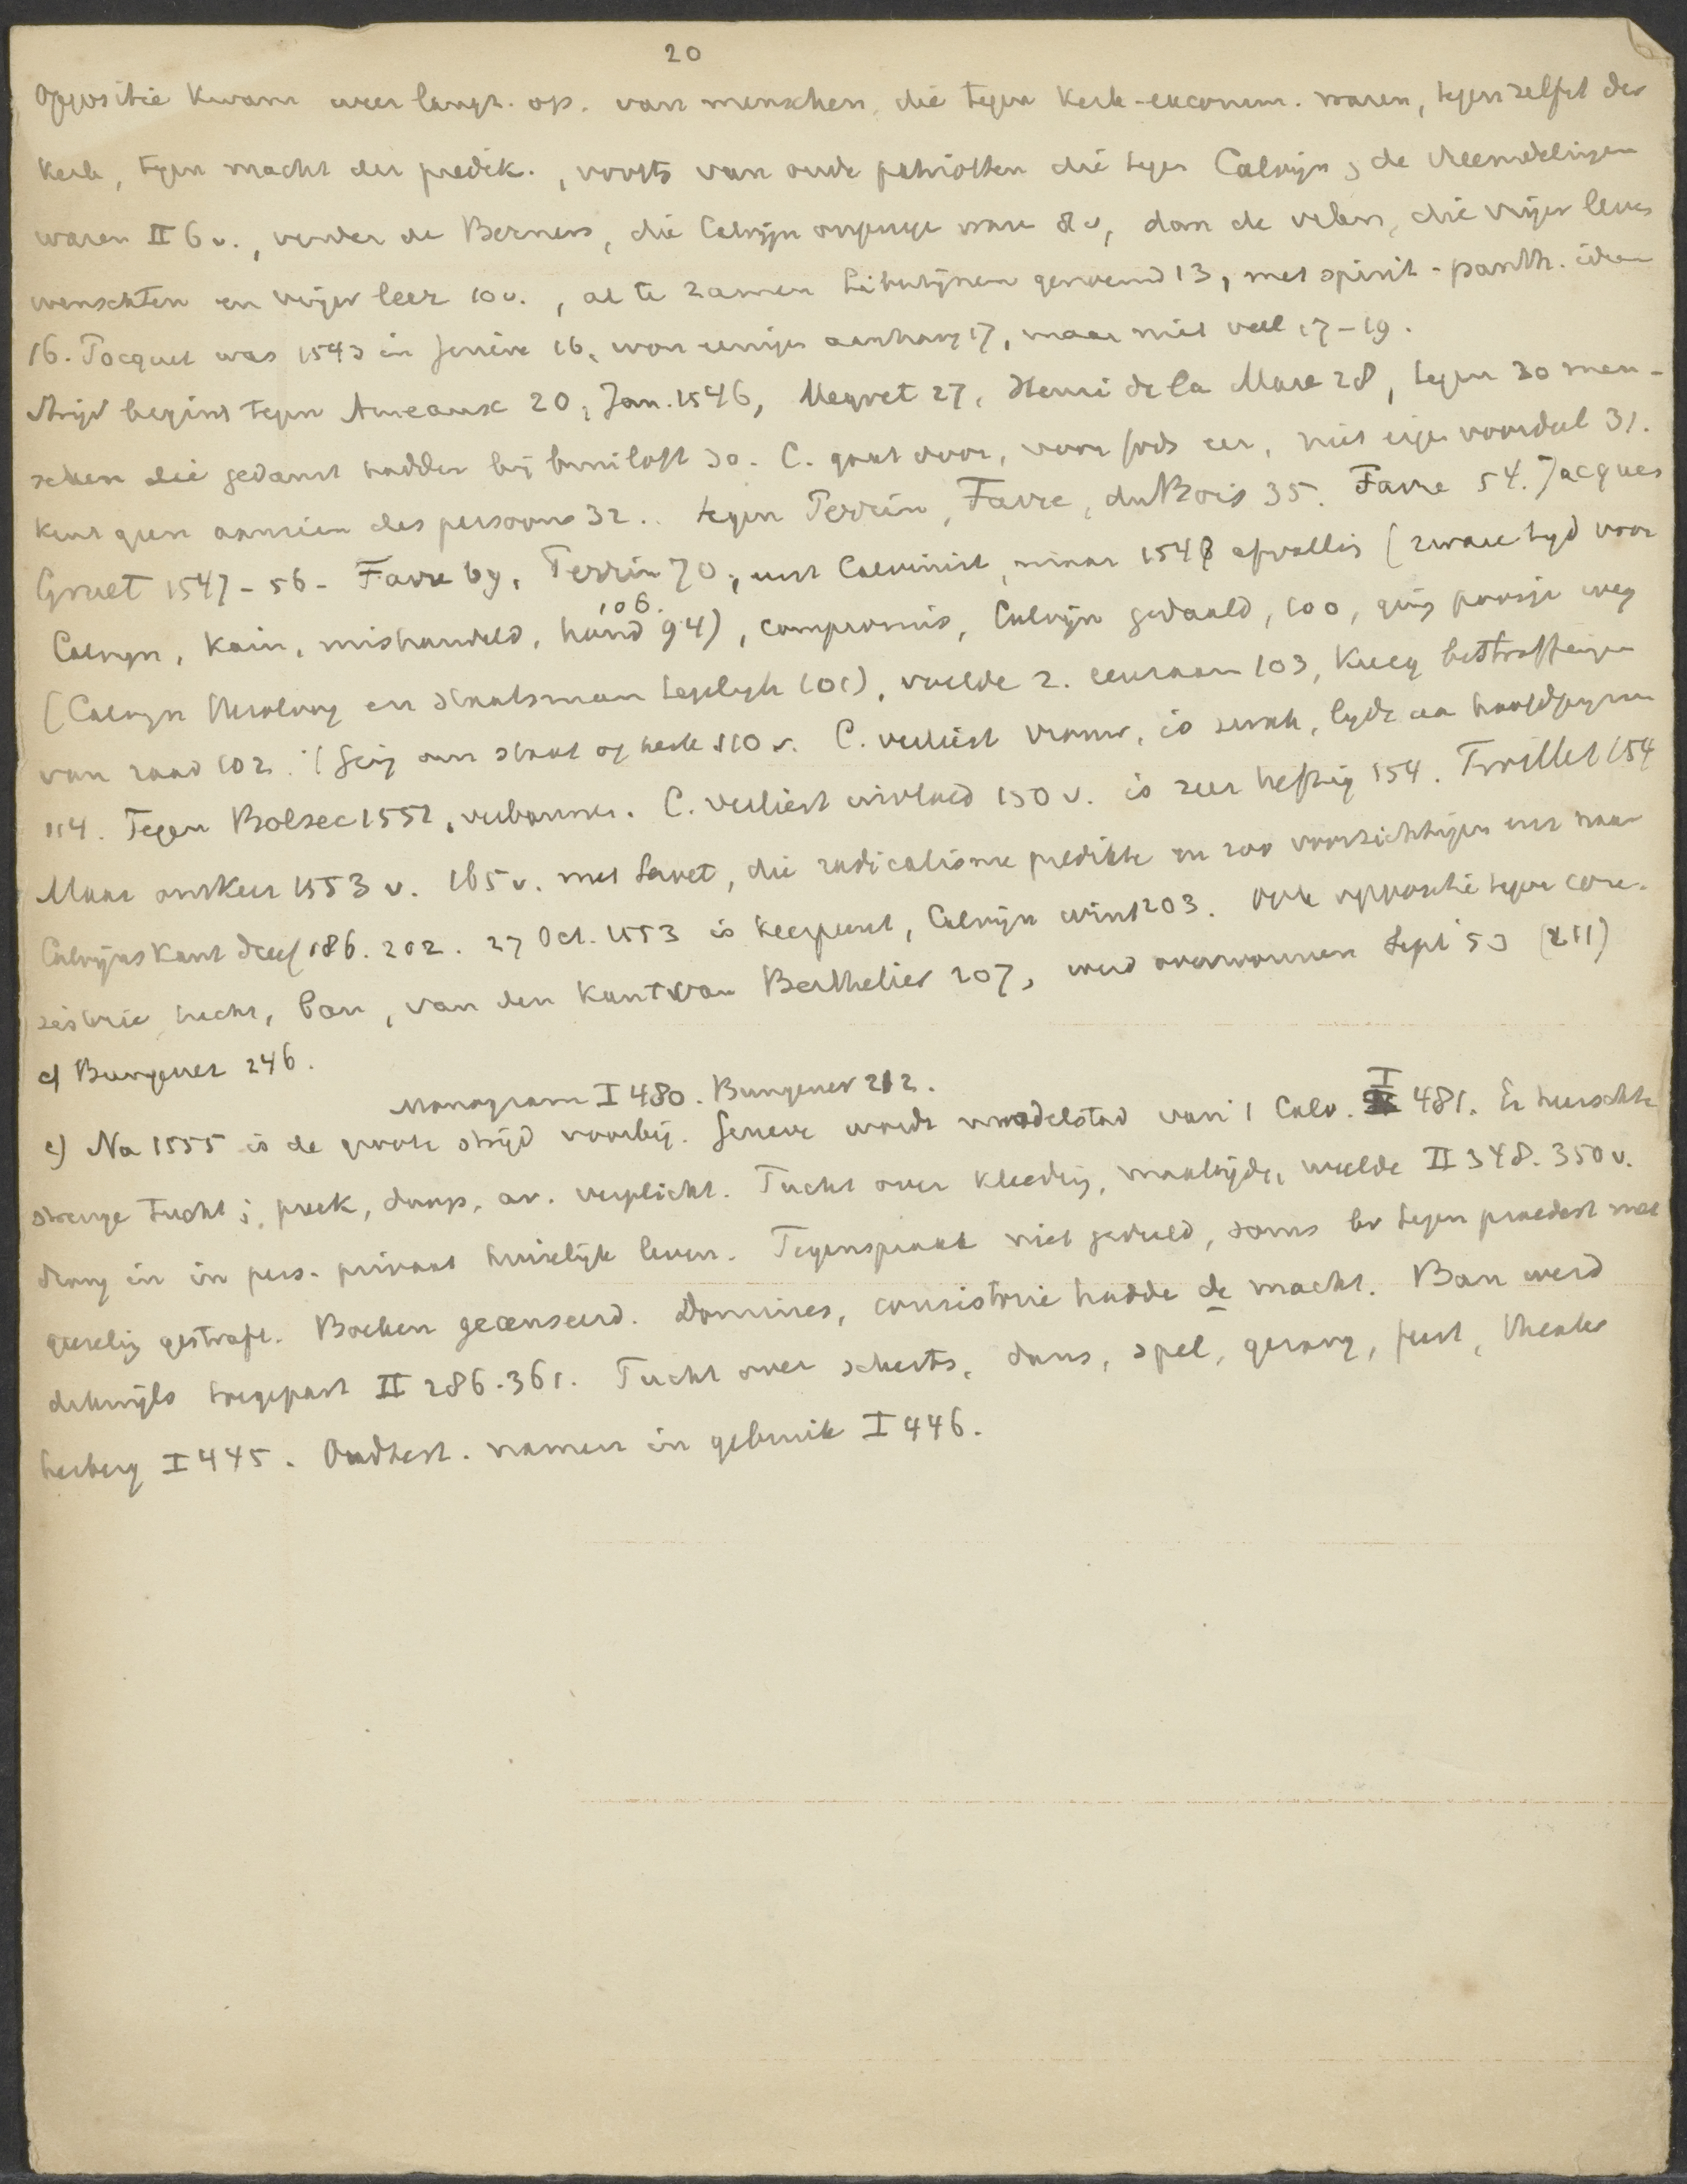 20
Oppositie kwam weer langz. op. van menschen, die tegen Kerk-excomm. waren, tegen zelfst der
kerk, tegen macht der predik., voorts van oude patriotten die tegen Calvijn & de vreemdelingen
waren II 6 v., verder de Berners, die Calvijn ongenege ware 8 v, dan de velen, die vrijer leven
wenschten en vrijer leer 10 v., al te zamen Libertijnen genoemd 13, met spirit-panth. ideen
16. Pocquet was 1543 in Genève 16, won eenige aanhang 17, maar niet veel 17-19.
Strijd begint tegen Ameaux 20, Jan. 1546, Megret 27, Henri de la Mare 28, tegen 30 men-
schen die gedanst hadden bij bruiloft 30. C. gaat door, voor Gods eer, niet eigen voordeel 31.
kent geen aanzien des persoons 32.. tegen Perrin, Favre, du Bois 35. Favre 54. Jacques
Gruet 1547-56- Favre 69, Perrin 70, eerst Calvinist, maar 1548 afvallig (zware tyd voor
Calvyn, Kain, mishandeld, hond 94) 106., compromis, Calvijn gedaald, 100, ging poosje weg
(Calvyn theoloog en staatsman tegelyk 101), voelde z. eenzaam 103, kreeg bestraffingen
van raad 102. Ging om staat og kerk 110 v. C. verliest vrouw, is zwak, lydt aan hoofdpynen
114. Tegen Bolsec 1551, verbannen. C. verliest invloed 150 v. is zeer heftig 154. Trolliet 154
Maar omkeer 1553 v. 165 v. met Servet, die radicalisme predikte en zoo voorzichtigen eer naar
Calvijns kant dreef 186. 202. 27 Oct. 1553 is keerpunt, Calvijn wint 203. Ook oppositie tegen con-
sistorie, tucht, ban, van den kant van Berthelier 207, werd overwonnen Sept 53 (211)
c) Bungener 246.
Monogram I 480. Bungener 212.
c) Na 1555 is de groote strijd voorbij. Geneve wordt modelstad van 't Calv. I 481. Er heerschte
strenge tucht; preek, doop, av. verplicht. Tucht over kleeding, maaltijde, weelde II 348. 350 v.
drong in in pers. privaat huiselijk leven. Tegenspraak niet geduld, soms bv tegen praedest met
geeseling gestraft. Boeken gecenseerd. Dominees, consistorie hadde de macht. Ban werd
dikwijls toegepast II 286. 361. Tucht over scherts, dans, spel, gezang, feest, theater
herberg I 445. Oudtest. namen in gebruik I 446.